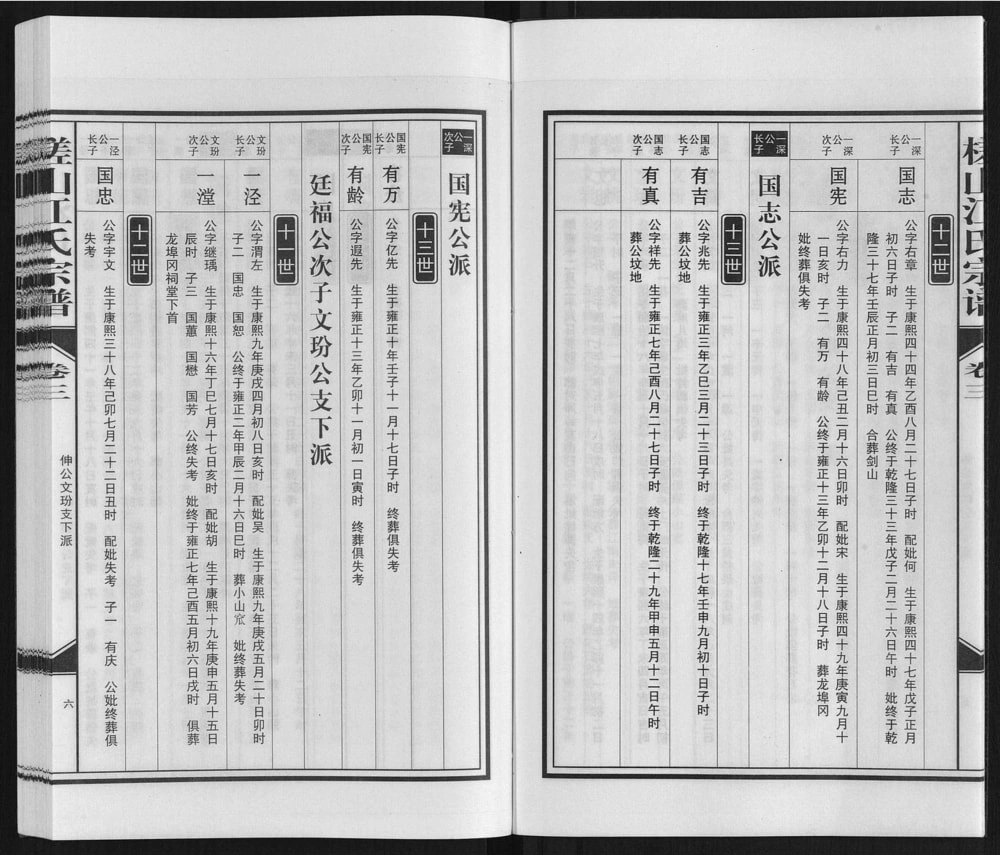 十二世
一深公长子
国志
公字右章 生于康熙四十四年乙酉八月二十七日子时 配妣何 生于康熙四十七年戊子正月
初六日子时 子二 有吉 有真 公终于乾隆三十三年戊子二月二十六日午时 妣终于乾
隆三十七年壬辰正月初三日巳时 合葬剑山
一深公次子
国宪
公字右力 生于康熙四十八年己丑二月十六日卯时 配妣宋 生于康熙四十九年庚寅九月十
一日亥时 子二 有万 有龄 公终于雍正十三年乙卯十二月十八日子时 葬龙埠冈
妣终葬俱失考
一深公长子
国志公派
十三世
国志公长子
有吉
公字兆先 生于雍正三年乙巳三月二十三日子时 终于乾隆十七年壬申九月初十日子时
葬公坟地
国志公次子
有真
公字祥先 生于雍正七年己酉八月二十七日子时 终于乾隆二十九年甲申五月十二日午时
葬公坟地
一深公次子
国宪公派
十三世
国宪公长子
有万
公字亿先 生于雍正十年壬子十一月十七日子时 终葬俱失考
国宪公次子
有龄
公字遐先 生于雍正十三年乙卯十一月初一日寅时 终葬俱失考
廷福公次子文玢公支下派
十一世
文玢公长子
一泾
公字渭左 生于康熙九年庚戌四月初八日亥时 配妣吴 生于康熙九年庚戌五月二十日卯时
子二 国忠 国恕 公终于雍正二年甲辰二月十六日巳时 葬小山㝝 妣终葬失考
文玢公次子
一漟
公字继瑀 生于康熙十六年丁巳七月十七日亥时 配妣胡 生于康熙十九年庚申五月十五日
辰时 子三 国蕙 国懋 国芳 公终失考 妣终于雍正七年己酉五月初六日戌时 俱葬
龙埠冈祠堂下首
十二世
一泾公长子
国忠
公字宇文 生于康熙三十八年己卯七月二十二日丑时 配妣失考 子一 有庆 公妣终葬俱
失考
槎山江氏宗谱
卷三
伸公文玢支下派
六